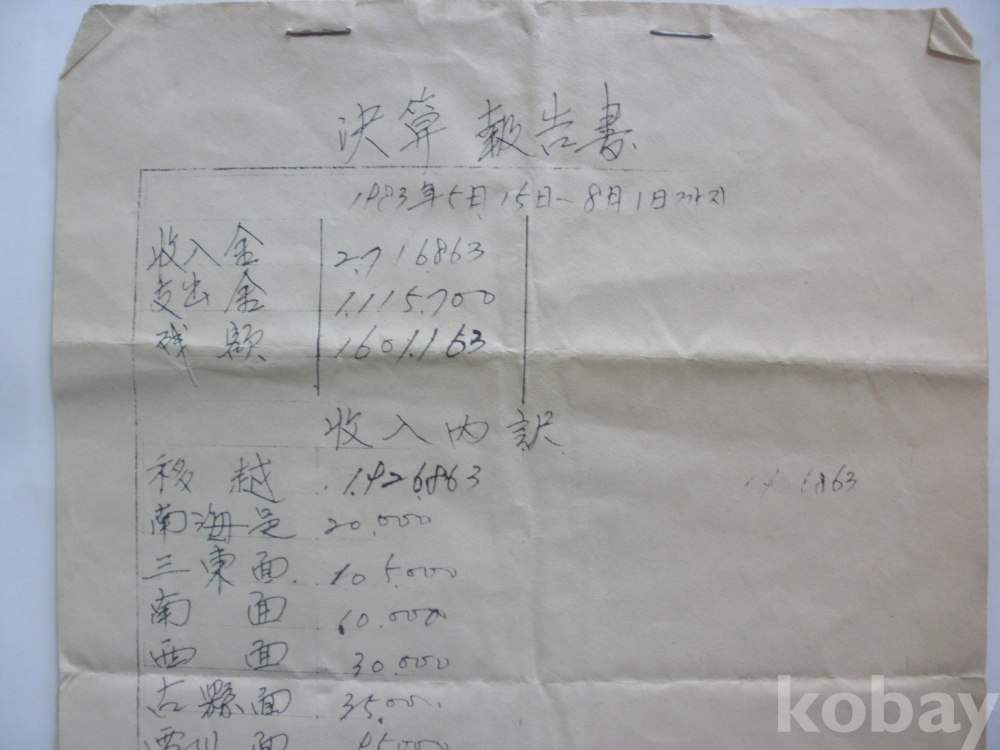 決算 報告書
1983年 5月 15日 - 8月 1日까지
收入金 2.716.863
支出金 1.115.700
残額 1.601.163
收入内訳
移越 1.426.863
863
南海邑 20.000
三東面 105.000
南面 60.000
西面 30.000
古縣面 35.000
面
kobay